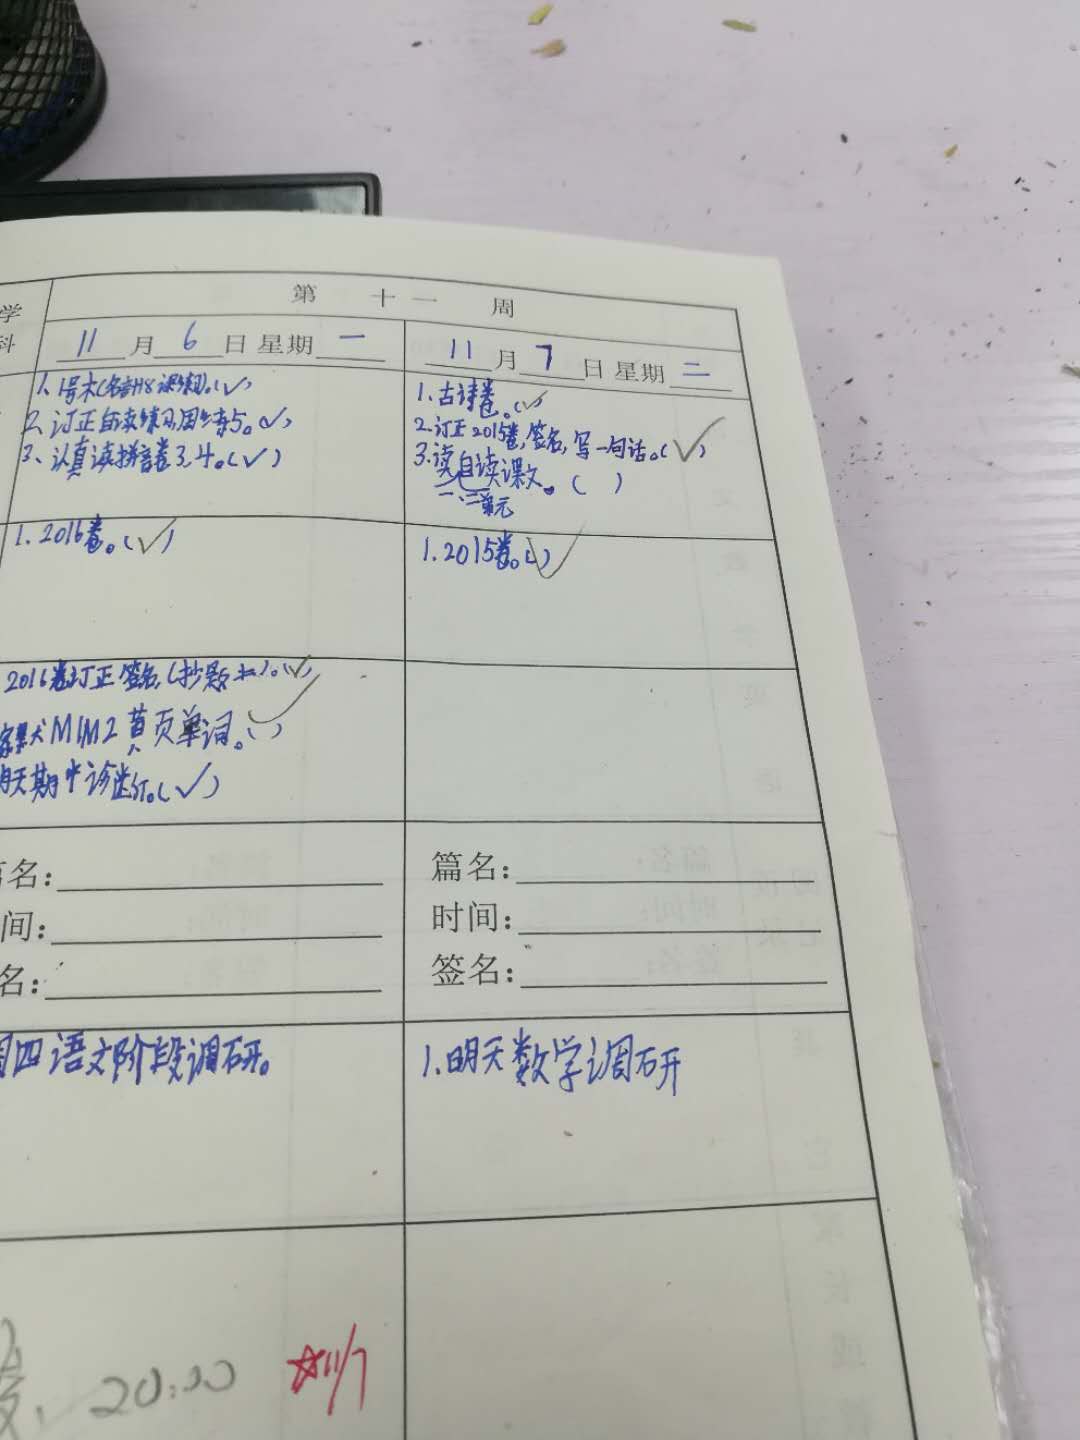 学 第 十 一 周
科 11 月 6 日 星期 一
11 月 7 日 星期 二
2. 订正自读练习,周练5。(✓)
3、认真读拼音卷3.4。(✓)
1. 古诗卷。(✓)
2. 订正2015卷,签名,写一句话。(✓)
3. 读自读课文。( )
一、二单元
1. 2016卷。(✓)
1. 2015卷。(✓)
2016卷订正签名,
M1M2黄页单词。( )
明天期中诊断。(✓)
名:
间:
名:
篇名:
时间:
签名:
周四语文阶段调研。
1. 明天数学调研
20:00
☆11/7